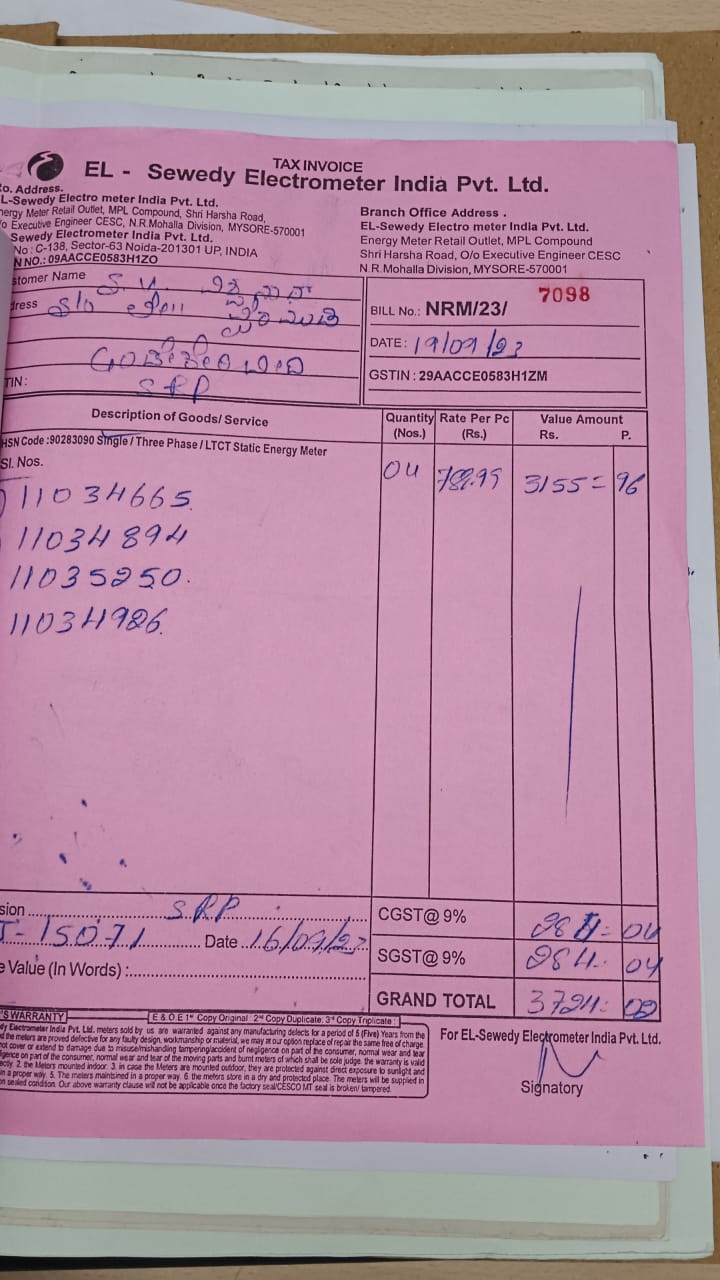 TAX INVOICE
EL - Sewedy Electrometer India Pvt. Ltd.
o. Address.
L-Sewedy Electro meter India Pvt. Ltd.
nergy Meter Retail Outlet, MPL Compound, Shri Harsha Road,
o Executive Engineer CESC, N.R.Mohalla Division, MYSORE-570001
Sewedy Electrometer India Pvt. Ltd.
No : C-138, Sector-63 Noida-201301 UP, INDIA
N NO.: 09AACCE0583H1ZO
Branch Office Address .
EL-Sewedy Electro meter India Pvt. Ltd.
Energy Meter Retail Outlet, MPL Compound
Shri Harsha Road, O/o Executive Engineer CESC
N.R.Mohalla Division, MYSORE-570001
stomer Name
dress
TIN: SRP
BILL No.: NRM/23/ 7098
DATE : 19/09/23
GSTIN : 29AACCE0583H1ZM
Description of Goods/ Service Quantity (Nos.) Rate Per Pc (Rs.) Value Amount Rs. P.
HSN Code :90283090 Single / Three Phase / LTCT Static Energy Meter
Sl. Nos.
04 788.99 3155= 96
11034665.
11034894
11035250.
11034986.
sion SRP
CGST@ 9% 284= 04
J-15071 Date 16/09/23
SGST@ 9% 284. 04
e Value (In Words) :
GRAND TOTAL 3724: 02
'S WARRANTY E & O.E 1st Copy Original : 2nd Copy Duplicate: 3rd Copy Triplicate :
dy Electrometer India Pvt. Ltd. meters sold by us are warranted against any manufacturing defects for a period of 5 (Five) Years from the
d the meters are proved defective for any faulty design, workmanship or material, we may at our option replace of repair the same free of charge.
not cover or extend to damage due to misuse/mishanding tampering/accident of negligence on part of the consumer, normal wear and tear
ligence on part of the consumer, normal wear and tear of the moving parts and burnt meters of which shall be sole judge. the warranty is valid
ectly. 2. the Meters mounted indoor. 3. in case the Meters are mounted outdoor, they are protected against direct exposure to sunlight and
in a proper way. 5. The meters maintsined in a proper way. 6. the meters store in a dry and protected place. The meters will be supplied in
on sealed condition. Our above warranty clause will not be applicable once the factory seal/CESCO MT seal is broken/ tampered.
For EL-Sewedy Electrometer India Pvt. Ltd.
Signatory